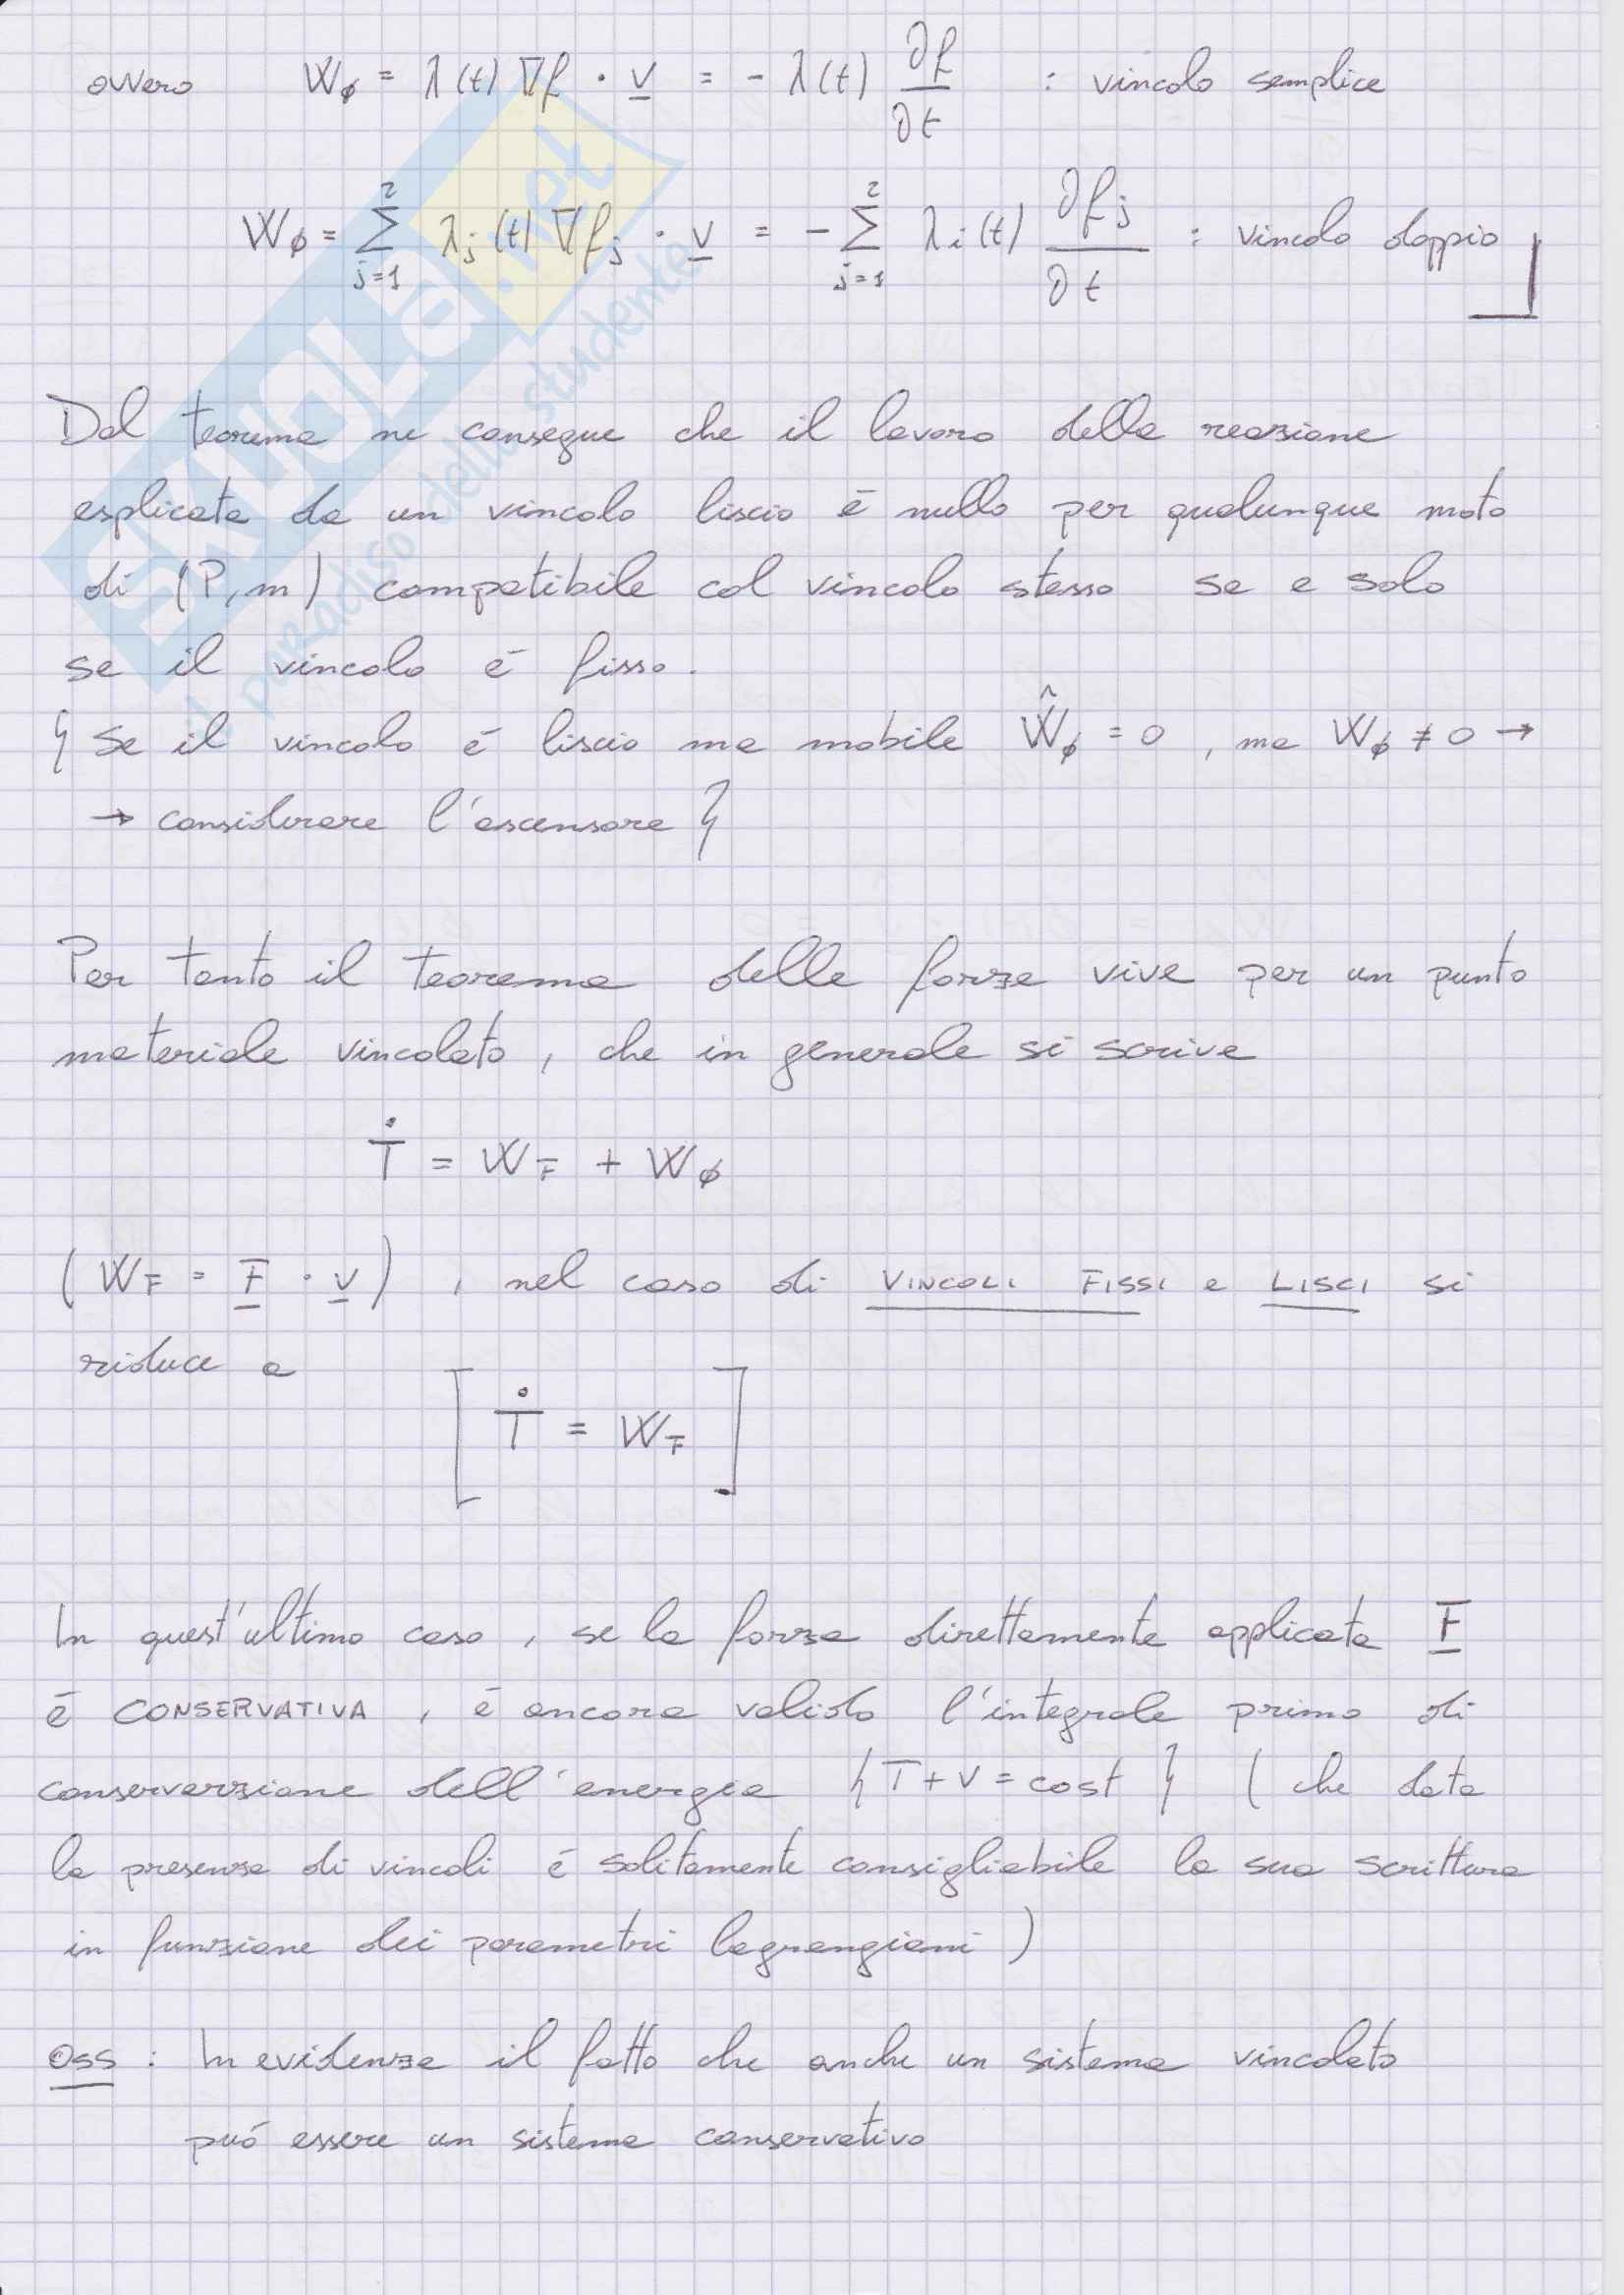 ovvero W_ϕ = λ(t) ∇f · v = - λ(t) ∂f/∂t : vincolo semplice
W_ϕ = Σ_{j=1}^{2} λ_j(t) ∇f_j · v = - Σ_{j=1}^{2} λ_i(t) ∂f_j/∂t : vincolo doppio
Dal teorema ne consegue che il lavoro della reazione
esplicata da un vincolo liscio é nullo per qualunque moto
di (P,m) compatibile col vincolo stesso se e solo
se il vincolo é fisso.
{ Se il vincolo é liscio ma mobile Ŵ_ϕ = 0 , ma W_ϕ ≠ 0 →
→ considerare l'ascensore }
Per tanto il teorema delle forze vive per un punto
materiale vincolato, che in generale si scrive
Ṫ = W_F + W_ϕ
( W_F = F · v ) , nel caso di VINCOLI FISSI e LISCI si
riduce a
[ Ṫ = W_F ]
In quest'ultimo caso, se la forza direttamente applicata F
é CONSERVATIVA , é ancora valido l'integrale primo di
conserverzione dell'energia { T+V = cost } ( che data
la presenza di vincoli é solitamente consigliabile la sua scrittura
in funzione dei parametri lagrangiani )
Oss : In evidenza il fatto che anche un sistema vincolato
puó essere un sistema conservativo
SKUOLA.net
il paradiso dello studente